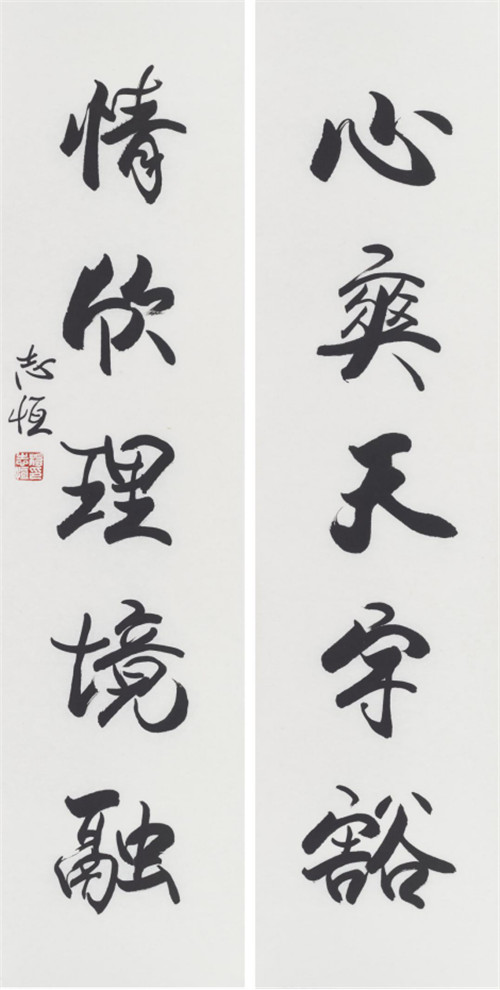 心爽天宇豁
情欣理境融
志恒